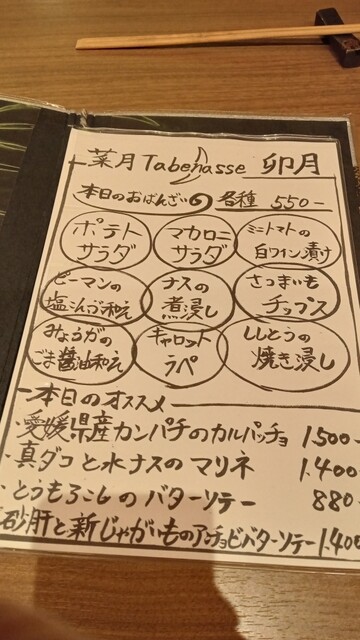 菜月 Tabenasse 卯月
本日のおばんざい 各種 550-
ポテトサラダ
マカロニサラダ
ミニトマトの白ワイン漬け
ピーマンの塩こんぶ和え
ナスの煮浸し
さつまいもチップス
みょうがのごま醤油和え
キャロットラペ
ししとうの焼き浸し
本日のオススメ
愛媛県産カンパチのカルパッチョ 1.500-
・真ダコと水ナスのマリネ 1.400
・とうもろこしのバターソテー 880
砂肝と新じゃがいものアンチョビバターソテー 1.400